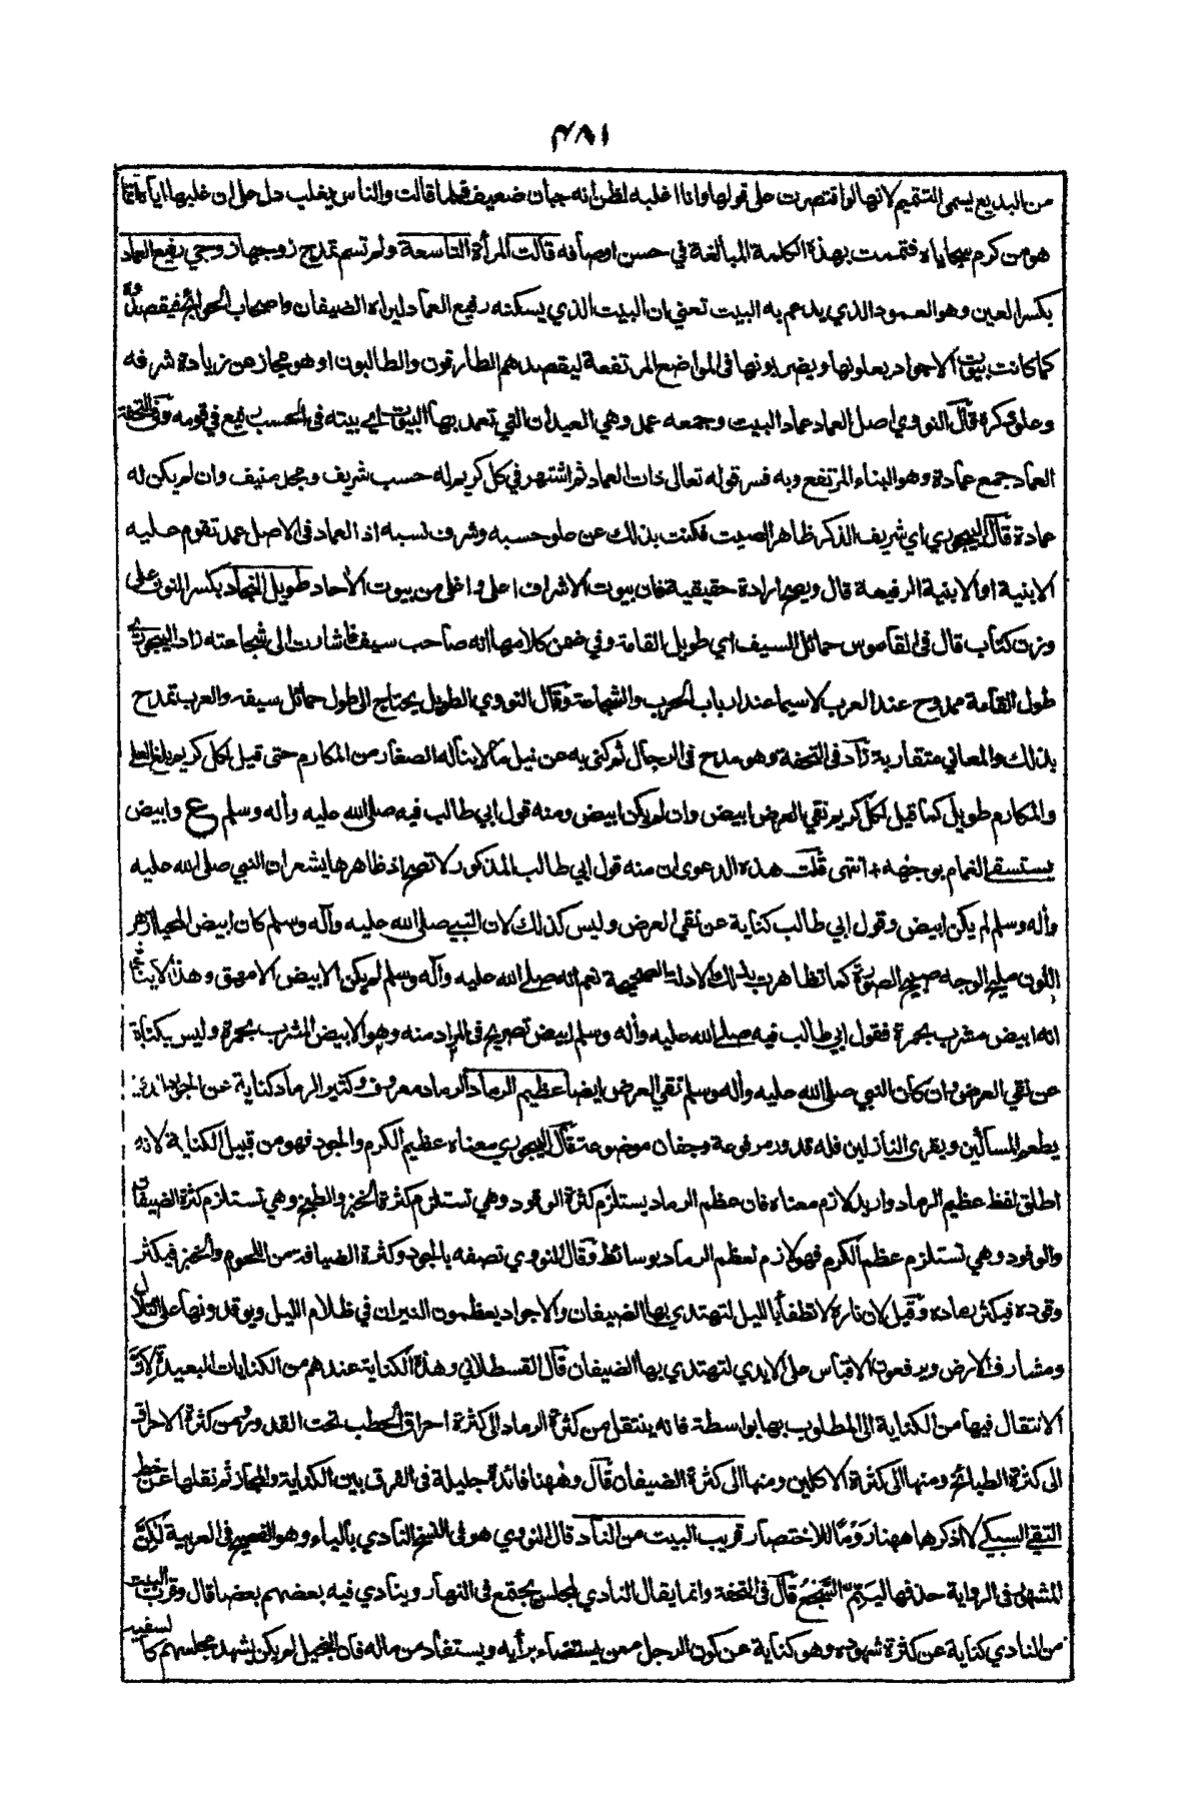 ٤٨١
من البديع يسمى التتميم لانها لو اقتصرت على قولها وانا اغلبه لظن انه جبان ضعيف فلما قالت والناس يغلب دل على ان غلبها اياه انما
هو من كرم سجاياه فتممت بهذه الكلمة المبالغة في حسن اوصافه قالت المرأة التاسعة ولم تسم تمدح زوجها زوجي رفيع العماد
بكسر العين وهو العمود الذي يدعم به البيت تعني ان البيت الذي يسكنه رفيع العماد ليراه الضيفان واصحاب الحوائج فيقصدوه
كما كانت بيوت الاجواد يعلونها ويضربونها في المواضع المرتفعة ليقصدهم الطارقون والطالبون او هو مجاز عن زيادة شرفه
وعلو ذكره قال النووي اصل العماد عماد البيت وجمعه عمد وهي العيدان التي تعمد بها البيوت اي بيته في الحسب رفيع في قومه وفي التحفة
العماد جمع عمادة وهو البناء المرتفع وبه فسر قوله تعالى ذات العماد ثم اشتهر في كل كريم له حسب شريف ومجد منيف وان لم يكن له
عمادة قال البيجوري اي شريف الذكر ظاهر الصيت فكنت بذلك عن علو حسبه وشرف نسبه اذ العماد في الاصل عمد تقوم عليه
الابنية او الابنية الرفيعة قال ويصح ارادة حقيقية فان بيوت الاشراف اعلى واغلى من بيوت الآحاد طويل النجاد بكسر النون على
وزن كتاب قال في القاموس حمائل السيف اي طويل القامة وفي ضمن كلامها انه صاحب سيف فاشارت الى شجاعته زاد البيجوري
طول القامة ممدوح عند العرب لا سيما عند ارباب الحرب والشجاعة وقال النووي الطويل يحتاج الى طول حمائل سيفه والعرب تمدح
بذلك والمعاني متقاربة زاد في التحفة وهو مدح في الرجال ثم كنى به عن نيل ما لا يناله الصغار من المكارم حتى قيل لكل كريم بلغ العلى
والمكارم طويل كما قيل لكل كريم نقي العرض ابيض وان لم يكن ابيض ومنه قول ابي طالب فيه صلى الله عليه وأله وسلم ع وابيض
يستسقى الغمام بوجهه + انتهى قلت هذه الدعوى ان منه قول ابي طالب المذكور لا تصح اذ ظاهرها يشعر ان النبي صلى الله عليه
وأله وسلم لم يكن ابيض وقول ابي طالب كناية عن نقي العرض وليس كذلك لان النبي صلى الله عليه وآله وسلم كان ابيض المحيا ازهر
اللون مليح الوجه صبيح الصورة كما تظاهرت بذلك الادلة الصحيحة نعم انه صلى الله عليه وآله وسلم لم يكن الابيض الامهق وهذا لا ينافي
انه ابيض مشرب بحمرة فقول ابي طالب فيه صلى الله عليه وأله وسلم ابيض تصريح في المراد منه وهو الابيض المشرب بحمرة وليس بكناية
عن نقي العرض وان كان النبي صلى الله عليه وأله وسلم نقي العرض ايضا عظيم الرماد الرماد معروف وكثير الرماد كناية عن الجواد
يطعم المساكين ويقري النازلين فله قدور مرفوعة وجفان موضوعة قال البيجوري معناه عظيم الكرم والجود فهو من قبيل الكناية لانه
اطلق لفظ عظيم الرماد واريد لازم معناه فان عظم الرماد يستلزم كثرة الوقود وهي تستلزم كثرة الخبز والطبخ وهي تستلزم كثرة الضيفان
والوفود وهي تستلزم عظم الكرم فهو لازم لعظم الرماد بوسائط وقال النووي تصفه بالجود وكثرة الضيافة من اللحوم والخبز فيكثر
وقوده فيكثر رماده وقيل لان ناره لا تطفأ بالليل لتهتدي بها الضيفان والاجواد يعظمون النيران في ظلام الليل ويوقدونها على التلال
ومشارف الارض ويرفعون الاقباس على الايدي لتهتدي بها الضيفان قال القسطلاني وهذه الكناية عندهم من الكنايات البعيدة لان
الانتقال فيها من الكناية الى المطلوب بها بواسطة فانه ينتقل من كثرة الرماد الى كثرة احراق الحطب تحت القدر ومن كثرة الاحراق
الى كثرة الطبائخ ومنها الى كثرة الاكلين ومنها الى كثرة الضيفان قال وههنا فائدة جليلة في الفرق بين الكناية والمجاز ثم نقلها عن خط
التقي السبكي لا اذكرها ههنا روما للاختصار قريب البيت من الناد قال النووي هو في النسخ النادي بالياء وهو الفصيح في العربية لكن
المشهور في الرواية حذفها ليتم السجع قال في التحفة وانما يقال النادي لمجلس يجتمع في النهار وينادي فيه بعضهم بعضا قال وقرب البيت
من النادي كناية عن كثرة شهوده وهو كناية عن كون الرجل ممن يستضاء برأيه ويستفاد من ماله فان البخيل لم يكن يشهد مجلسهم كالسفيه